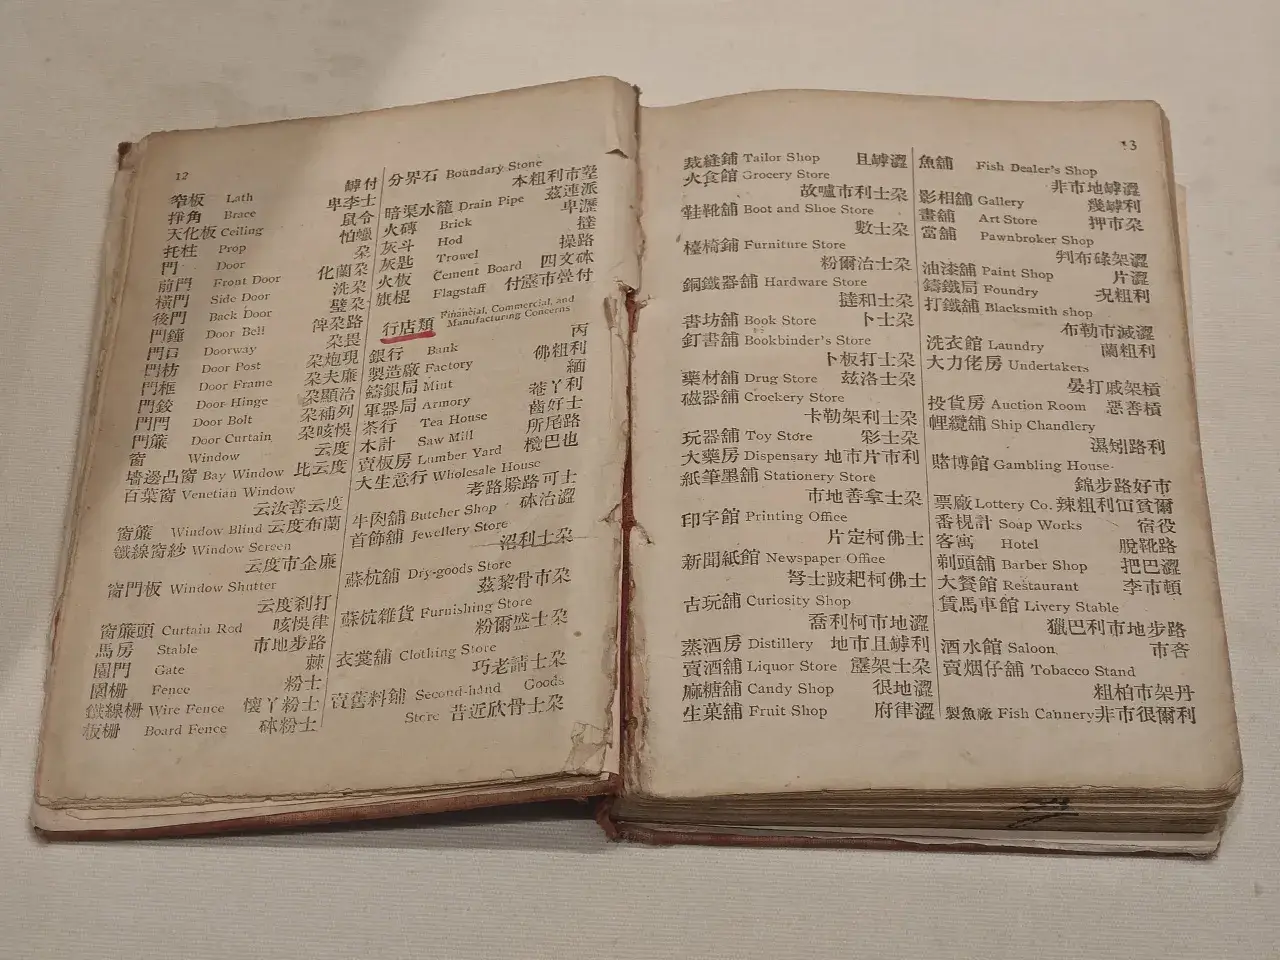 12
窄板 Lath 罅付
拇角 Brace 卑李士
天化板 Ceiling 鼠令
托柱 Prop 怕蠟
門 Door 朶
前門 Front Door 化蘭朶
橫門 Side Door 洗朶
後門 Back Door 璧朶
門鐘 Door Bell 朶路
門口 Doorway 朶畏
門枋 Door Post 朶炮現
門框 Door Frame 朶夫廉
門鉸 Door Hinge 朶顯治
門閂 Door Bolt 朶補列
門簾 Door Curtain 朶咳悞
窗 Window 云度
墻邊凸窗 Bay Window 比云度
百葉窗 Venetian Window
云汝善云度
窗簾 Window Blind 云度布蘭
鐵線窗紗 Window Screen
云度市企廉
窗門板 Window Shutter
云度剎打
窗簾頭 Curtain Rod 咳悞律
馬房 Stable 市地步路
園門 Gate 棘
園柵 Fence 粉士
鐵線柵 Wire Fence 懷丫粉士
板柵 Board Fence 砵粉士
分界石 Boundary Stone
本粗利市墪
暗渠水籠 Drain Pipe 茲連派
火磚 Brick 卑瀝
灰斗 Hod 撻
灰匙 Trowel 操路
火板 Cement Board 四文砵
旗棍 Flagstaff 付壥市孻付
行店類 Financial, Commercial, and
Manufacturing Concerns
銀行 Bank 丙
製造廠 Factory 佛粗利
鑄銀局 Mint 緬
軍器局 Armory 菴丫利
茶行 Tea House 齒好士
木計 Saw Mill 所尾路
賣板房 Lumber Yard 欖巴也
大生意行 Wholesale House
考路賒路可士
牛肉舖 Butcher Shop 砵治澀
首飾舖 Jewellery Store
沼利士朶
蘇杭舖 Dry-goods Store
茲黎骨市朶
蘇杭雜貨 Furnishing Store
粉爾盛士朶
衣裳舖 Clothing Store
巧老請士朶
賣舊料鋪 Second-hand Goods
Store 昔近欣骨士朶
13
裁縫鋪 Tailor Shop 且罅澀
火食館 Grocery Store
故嚧市利士朶
鞋靴舖 Boot and Shoe Store
數士朶
檯椅鋪 Furniture Store
粉爾治士朶
銅鐵器舖 Hardware Store
撻和士朶
書坊舖 Book Store 卜士朶
釘書舖 Bookbinder's Store
卜板打士朶
藥材舖 Drug Store 茲洛士朶
磁器舖 Crockery Store
卡勒架利士朶
玩器舖 Toy Store 彩士朶
大藥房 Dispensary 地市片市利
紙筆墨舖 Stationery Store
市地善拿士朶
印字館 Printing Office
片定柯佛士
新聞紙館 Newspaper Office
弩士跛耙柯佛士
古玩舖 Curiosity Shop
喬利柯市地澀
蒸酒房 Distillery 地市且罅利
賣酒舖 Liquor Store 壥架士朶
麻糖舖 Candy Shop 很地澀
生菓舖 Fruit Shop 府律澀
魚舖 Fish Dealer's Shop
非市地罅澀
影相舖 Gallery 幾罅利
畫舖 Art Store 押市朶
當舖 Pawnbroker Shop
判布碌架澀
油漆舖 Paint Shop 片澀
鑄鐵局 Foundry 况粗利
打鐵舖 Blacksmith shop
布勒市滅澀
洗衣館 Laundry 蘭粗利
大力佬房 Undertakers
晏打戚架槓
投貨房 Auction Room 惡善槓
浬纜舖 Ship Chandlery
濕矧路利
賭博館 Gambling House
錦步路好市
票廠 Lottery Co. 辣粗利冚賓爾
番枧計 Soap Works 宿役
客寓 Hotel 脫靴路
剃頭舖 Barber Shop 把巴澀
大餐館 Restaurant 李市頓
賃馬車館 Livery Stable
獵巴利市地步路
酒水館 Saloon 市吝
賣烟仔舖 Tobacco Stand
粗柏市架丹
製魚廠 Fish Cannery 非市很爾利